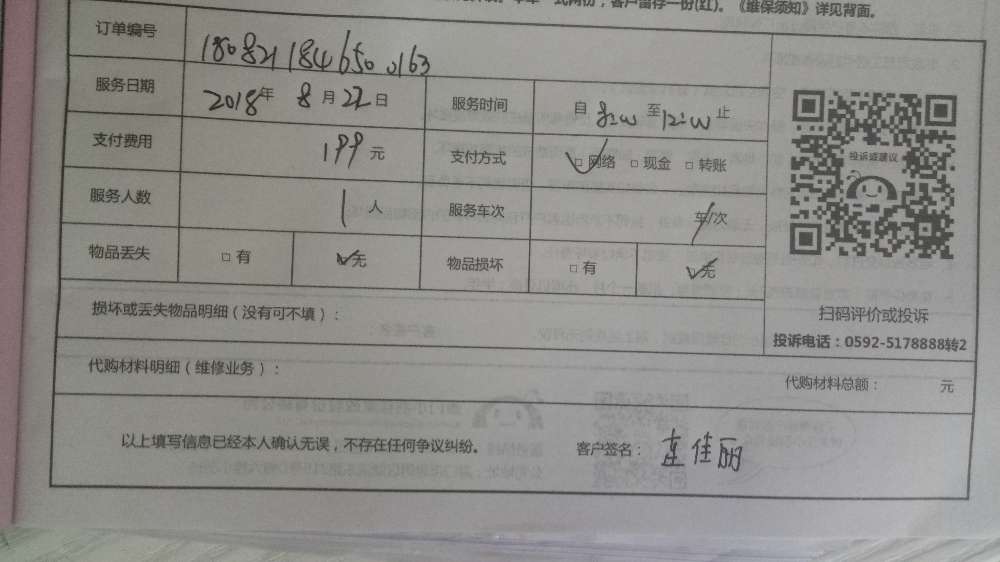 一式两份，客户留存一份(红)。《维保须知》详见背面。
订单编号 1808211846500163
服务日期 2018年 8月22日 服务时间 自 8:00 至 12:00 止
支付费用 199元 支付方式 ☑网络 □现金 □转账
投诉或建议
服务人数 1人 服务车次 车/次
物品丢失 □有 ☑无 物品损坏 □有 ☑无
损坏或丢失物品明细（没有可不填）：
扫码评价或投诉
投诉电话：0592-5178888转2
代购材料明细（维修业务）：
代购材料总额： 元
以上填写信息已经本人确认无误，不存在任何争议纠纷。 客户签名：连佳丽